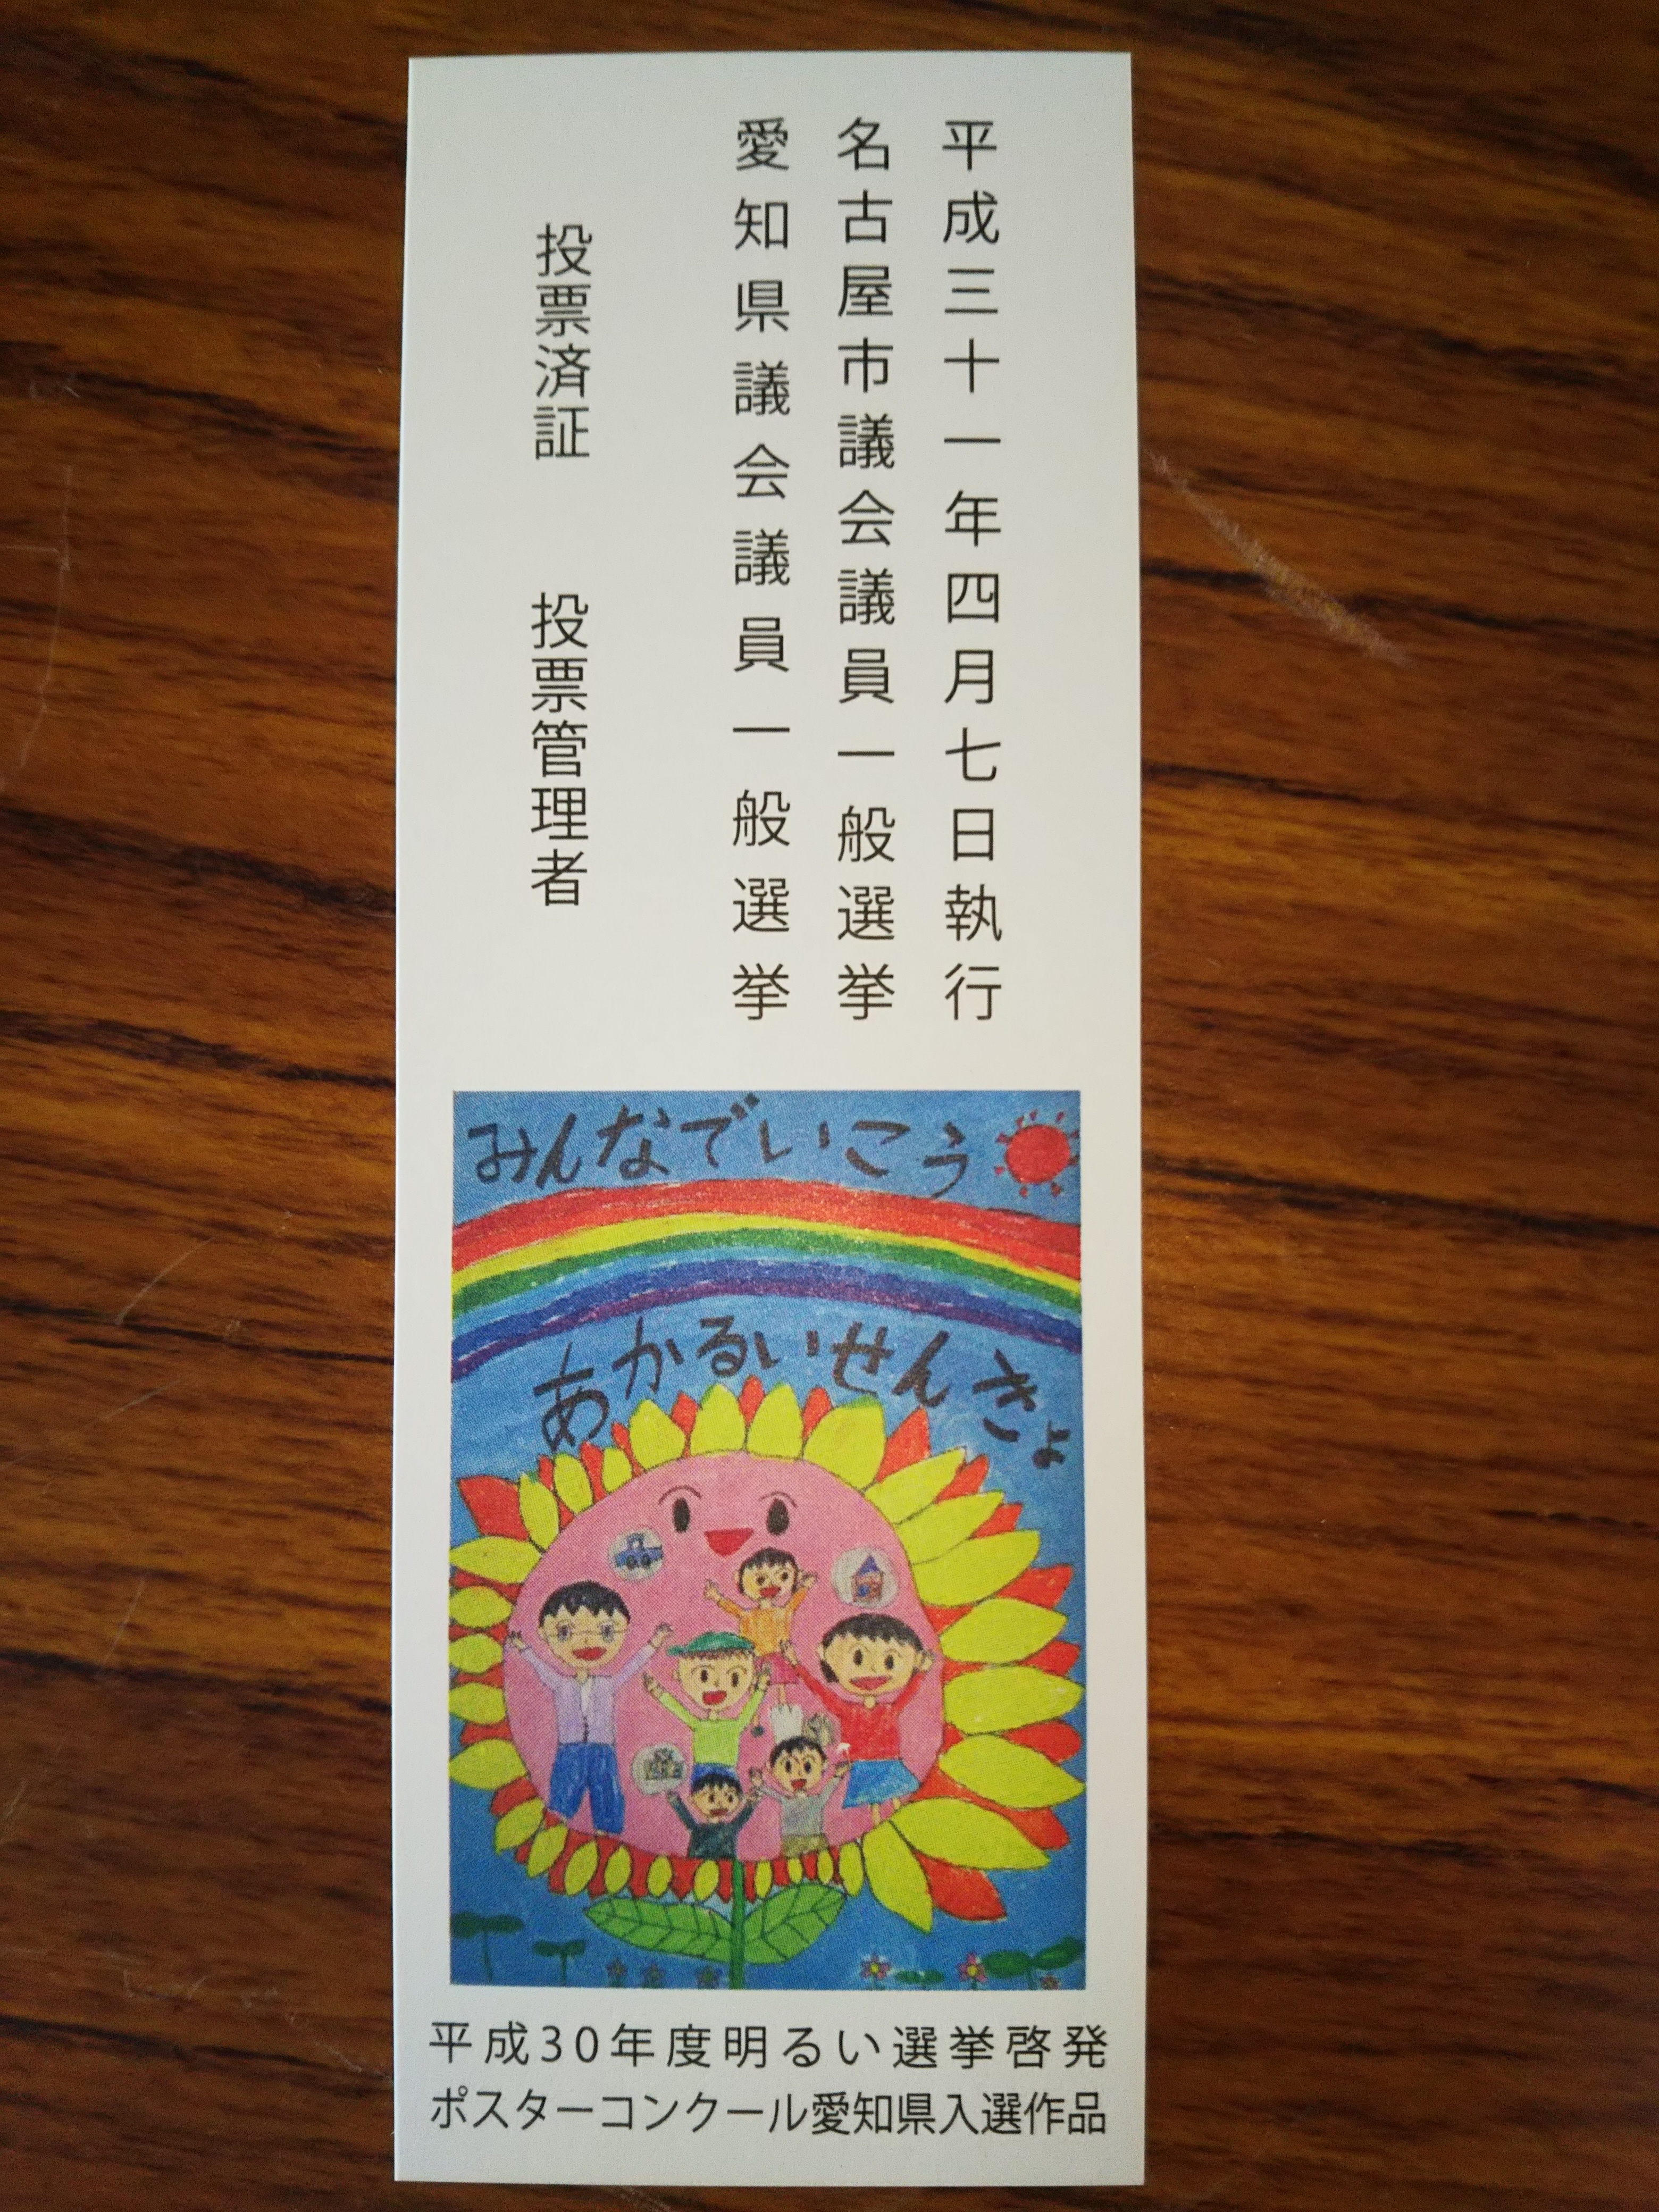 平成三十一年四月七日執行
名古屋市議会議員一般選挙
愛知県議会議員一般選挙
投票済証　投票管理者
みんなでいこう
あかるいせんきょ
平成30年度明るい選挙啓発
ポスターコンクール愛知県入選作品